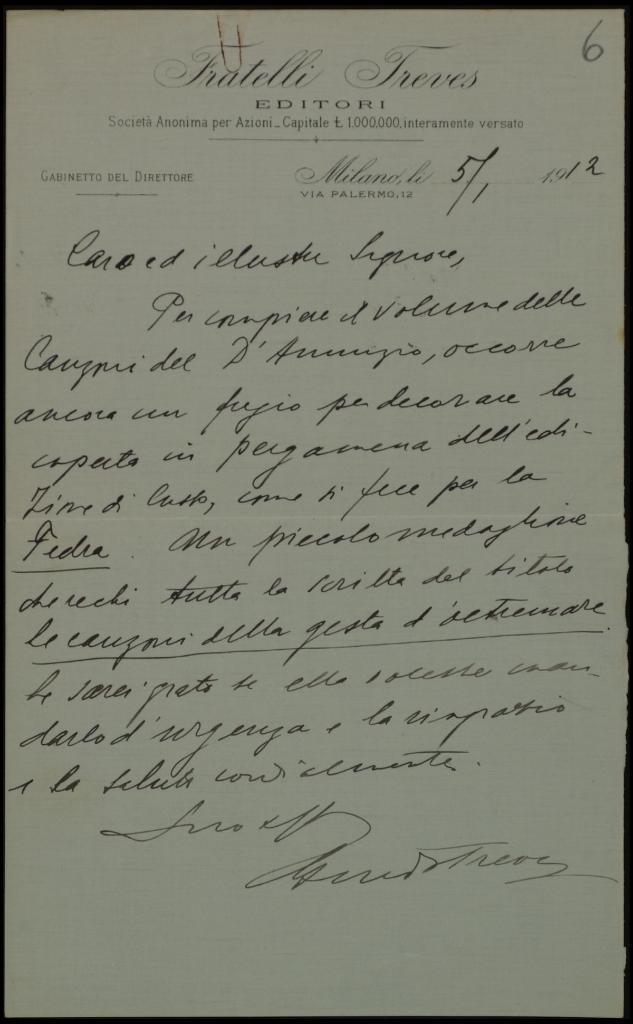 6
Fratelli Treves
EDITORI
Società Anonima per Azioni_Capitale Ł 1.000,000, interamente versato
GABINETTO DEL DIRETTORE
Milano, li 5/1 1912
VIA PALERMO, 12
Caro ed illustre Signore,
Per compiere il volume delle
Canzoni del D'Annunzio, occorre
ancora un fregio per decorare la
coperta in pergamena dell'edi-
zione di lusso, come si fece per la
Fedra. Un piccolo medaglione
che rechi tutta la scritta del titolo
le canzoni della gesta d'oltremare.
Le sarei grato se ella volesse man-
darlo d'urgenza e la ringrazio
e la saluto cordialmente.
Suo aff
Treves